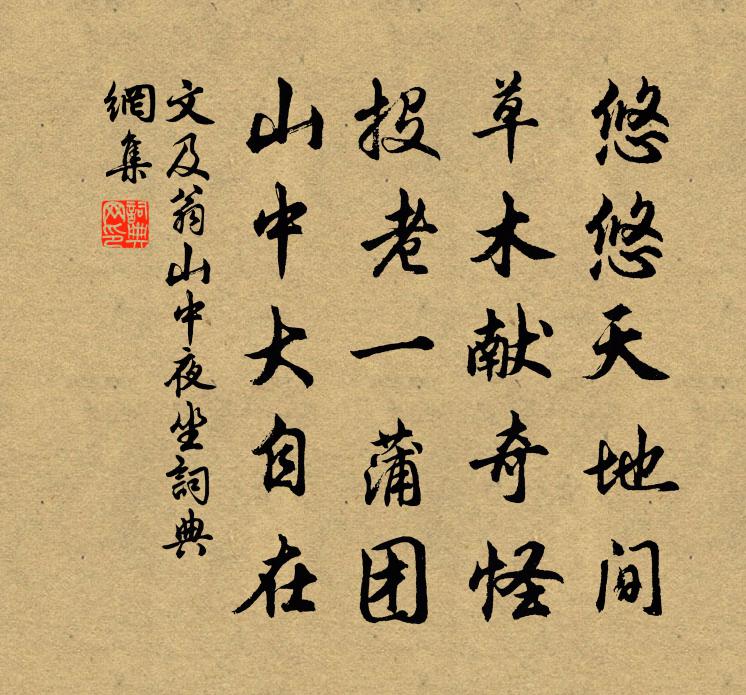 悠悠天地间
草木献奇怪
投老一蒲团
山中大自在
文及翁山中夜坐詞典
網集
詞典
网印